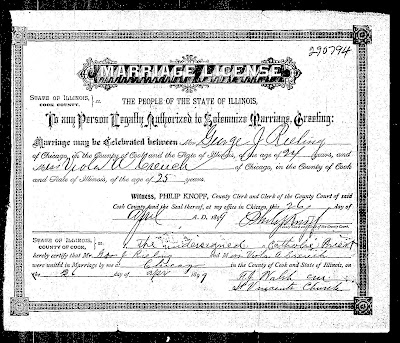 290794
MARRIAGE LICENSE
STATE OF ILLINOIS, } ss.
COOK COUNTY.
THE PEOPLE OF THE STATE OF ILLINOIS,
To any Person Legally Authorized to Solemnize Marriage, Greeting:
Marriage may be Celebrated between Mr George J Riesling
of Chicago, in the County of Cook and the State of Illinois, of the age of 24 years, and
Viola
of Chicago, in the County of Cook
and State of Illinois, of the age of 25 years.
Witness, PHILIP KNOPF, County Clerk and Clerk of the County Court of said
Cook County and the Seal thereof, at my office in Chicago this 26 day of
April A. D. 189 Philip Knopf
STATE OF ILLINOIS, } ss.
COUNTY OF COOK. I, the undersigned a Catholic Priest
hereby certify that Mr Geo. J and Viola
were united in Marriage by me at Chicago in the County of Cook and State of Illinois, on
26 day of Apr 1899
Walsh
St Vincents Church